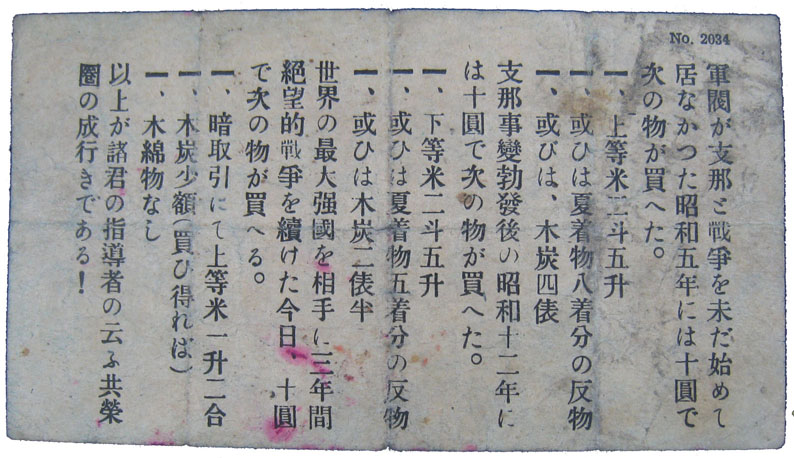 No. 2034
軍閥が支那と戰爭を未だ始めて
居なかつた昭和五年には十圓で
次の物が買へた。
一、上等米二斗五升
一、或ひは夏着物八着分の反物
一、或ひは、木炭四俵
支那事變勃發後の昭和十二年に
は十圓で次の物が買へた。
一、下等米二斗五升
一、或ひは夏着物五着分の反物
一、或ひは木炭二俵半
世界の最大强國を相手に三年間
絕望的戰爭を續けた今日、十圓
で次の物が買へる。
一、暗取引にて上等米一升二合
一、木炭少額（買ひ得れば）
一、木綿物なし
以上が諸君の指導者の云ふ共榮
圈の成行きである！